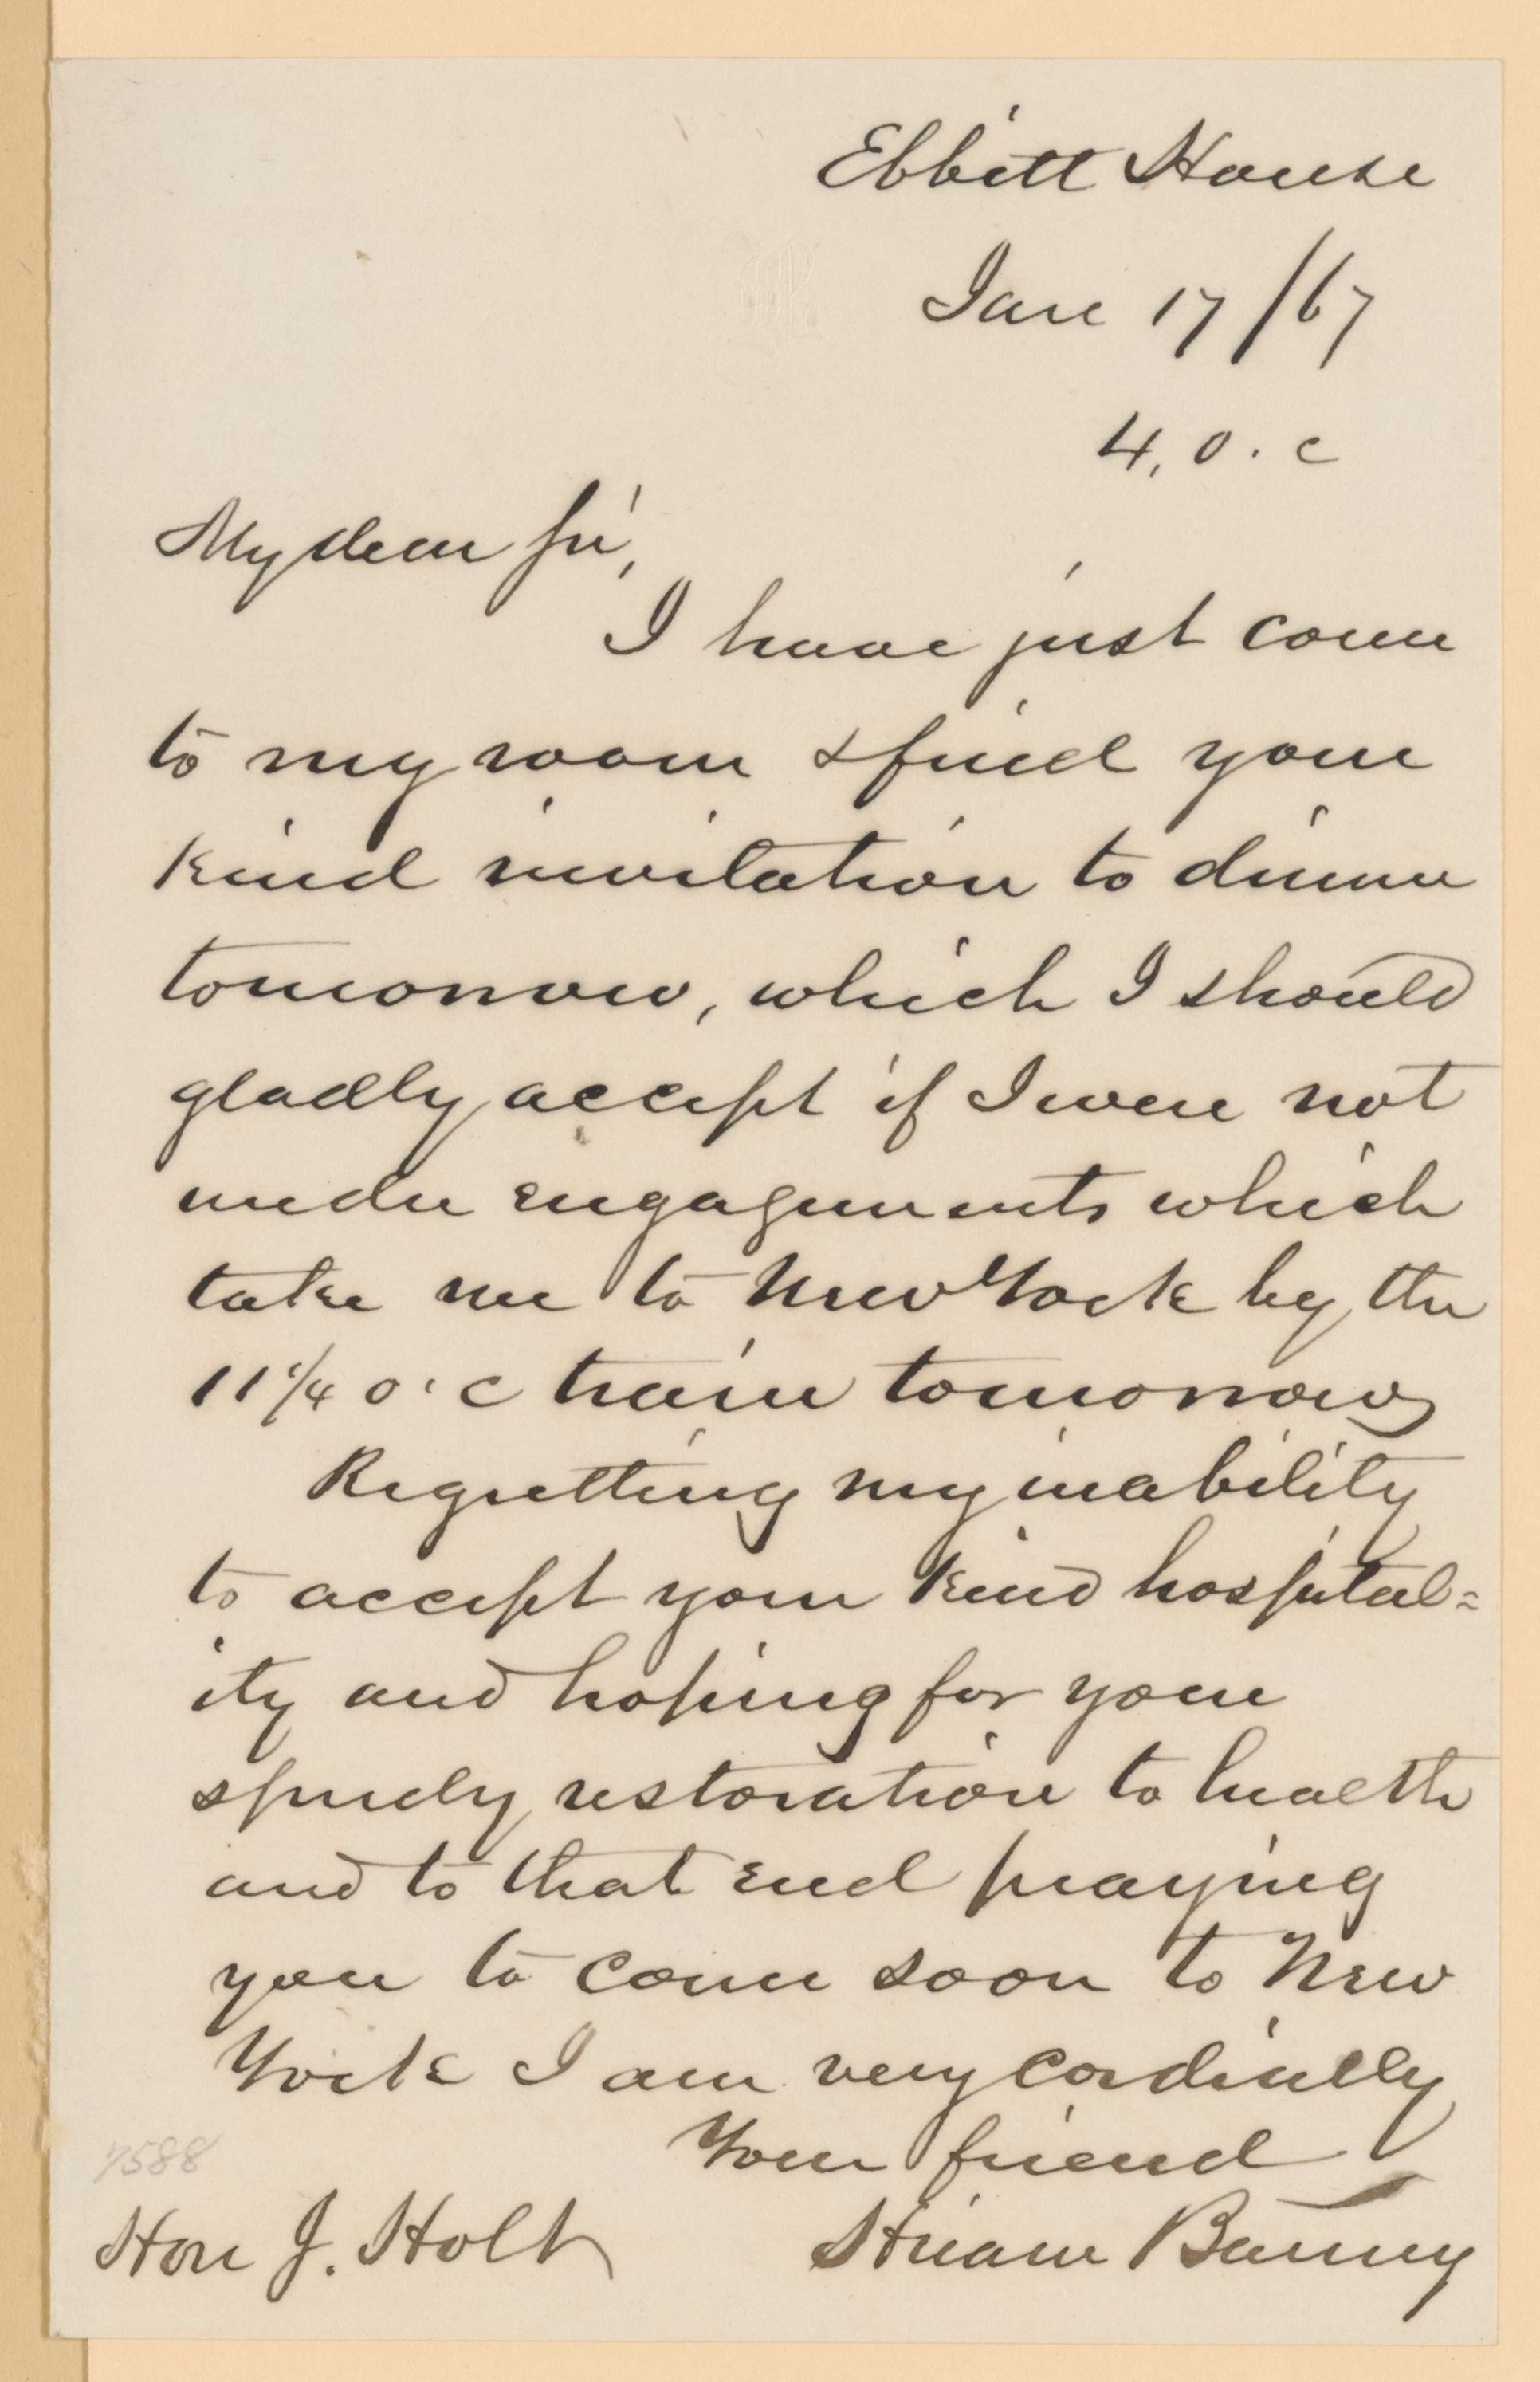 Ebbitt House
Jan 17/67
4, O. C
My dear Sir,
I have just come
to my room & find your
kind invitation to dinner
tomorrow, which I should
gladly accept if I were not
under engagements which
take me to New York by the
11 1/4 o'c train tomorrow
Regretting my inability
to accept your kind hospital=
ity and hoping for your
speedy restoration to health
and to that end praying
you to come soon to New
York I am very cordially
Your friend
Hiram Barney
Hon J. Holt
7588